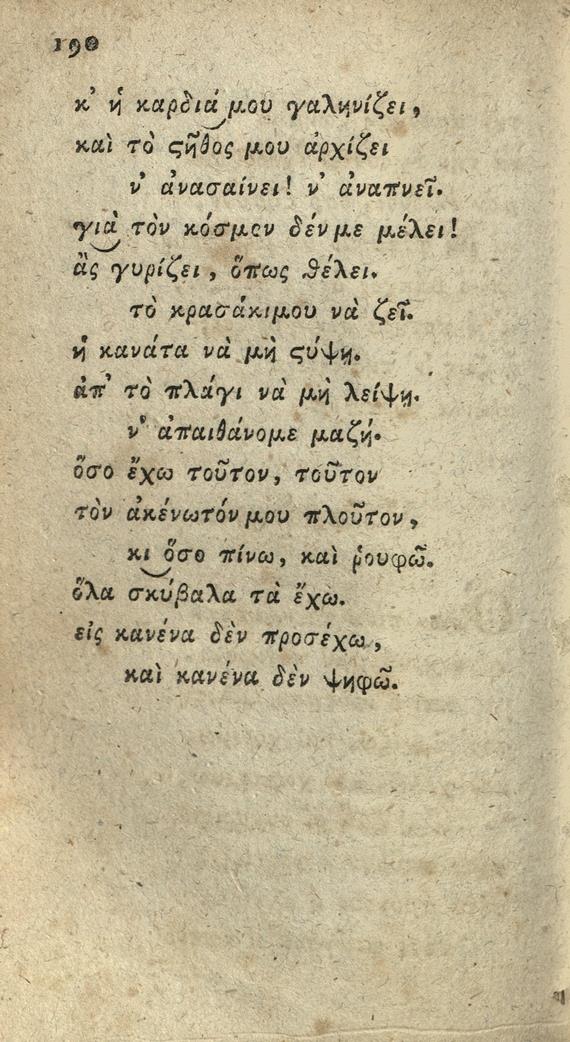 190
κ' ἡ καρδιά μου γαληνίζει,
καὶ τὸ ϛῆθος μου ἀρχίζει
ν' ἀνασαίνει! ν' ἀναπνεῖ.
γιὰ τὸν κόσμον δέν με μέλει!
ἂς γυρίζει, ὅπως θέλει.
τὸ κρασάκιμου νὰ ζεῖ.
ἡ κανάτα νὰ μὴ ϛύψῃ.
ἀπ' τὸ πλάγι νὰ μὴ λείψῃ.
ν' ἀπαιθάνομε μαζή.
ὅσο ἔχω τοῦτον, τοῦτον
τὸν ἀκένωτόν μου πλοῦτον,
κι ὅσο πίνω, καὶ ῥουφῶ.
ὅλα σκύβαλα τὰ ἔχω.
εἰς κανένα δὲν προσέχω,
καὶ κανένα δὲν ψηφῶ.